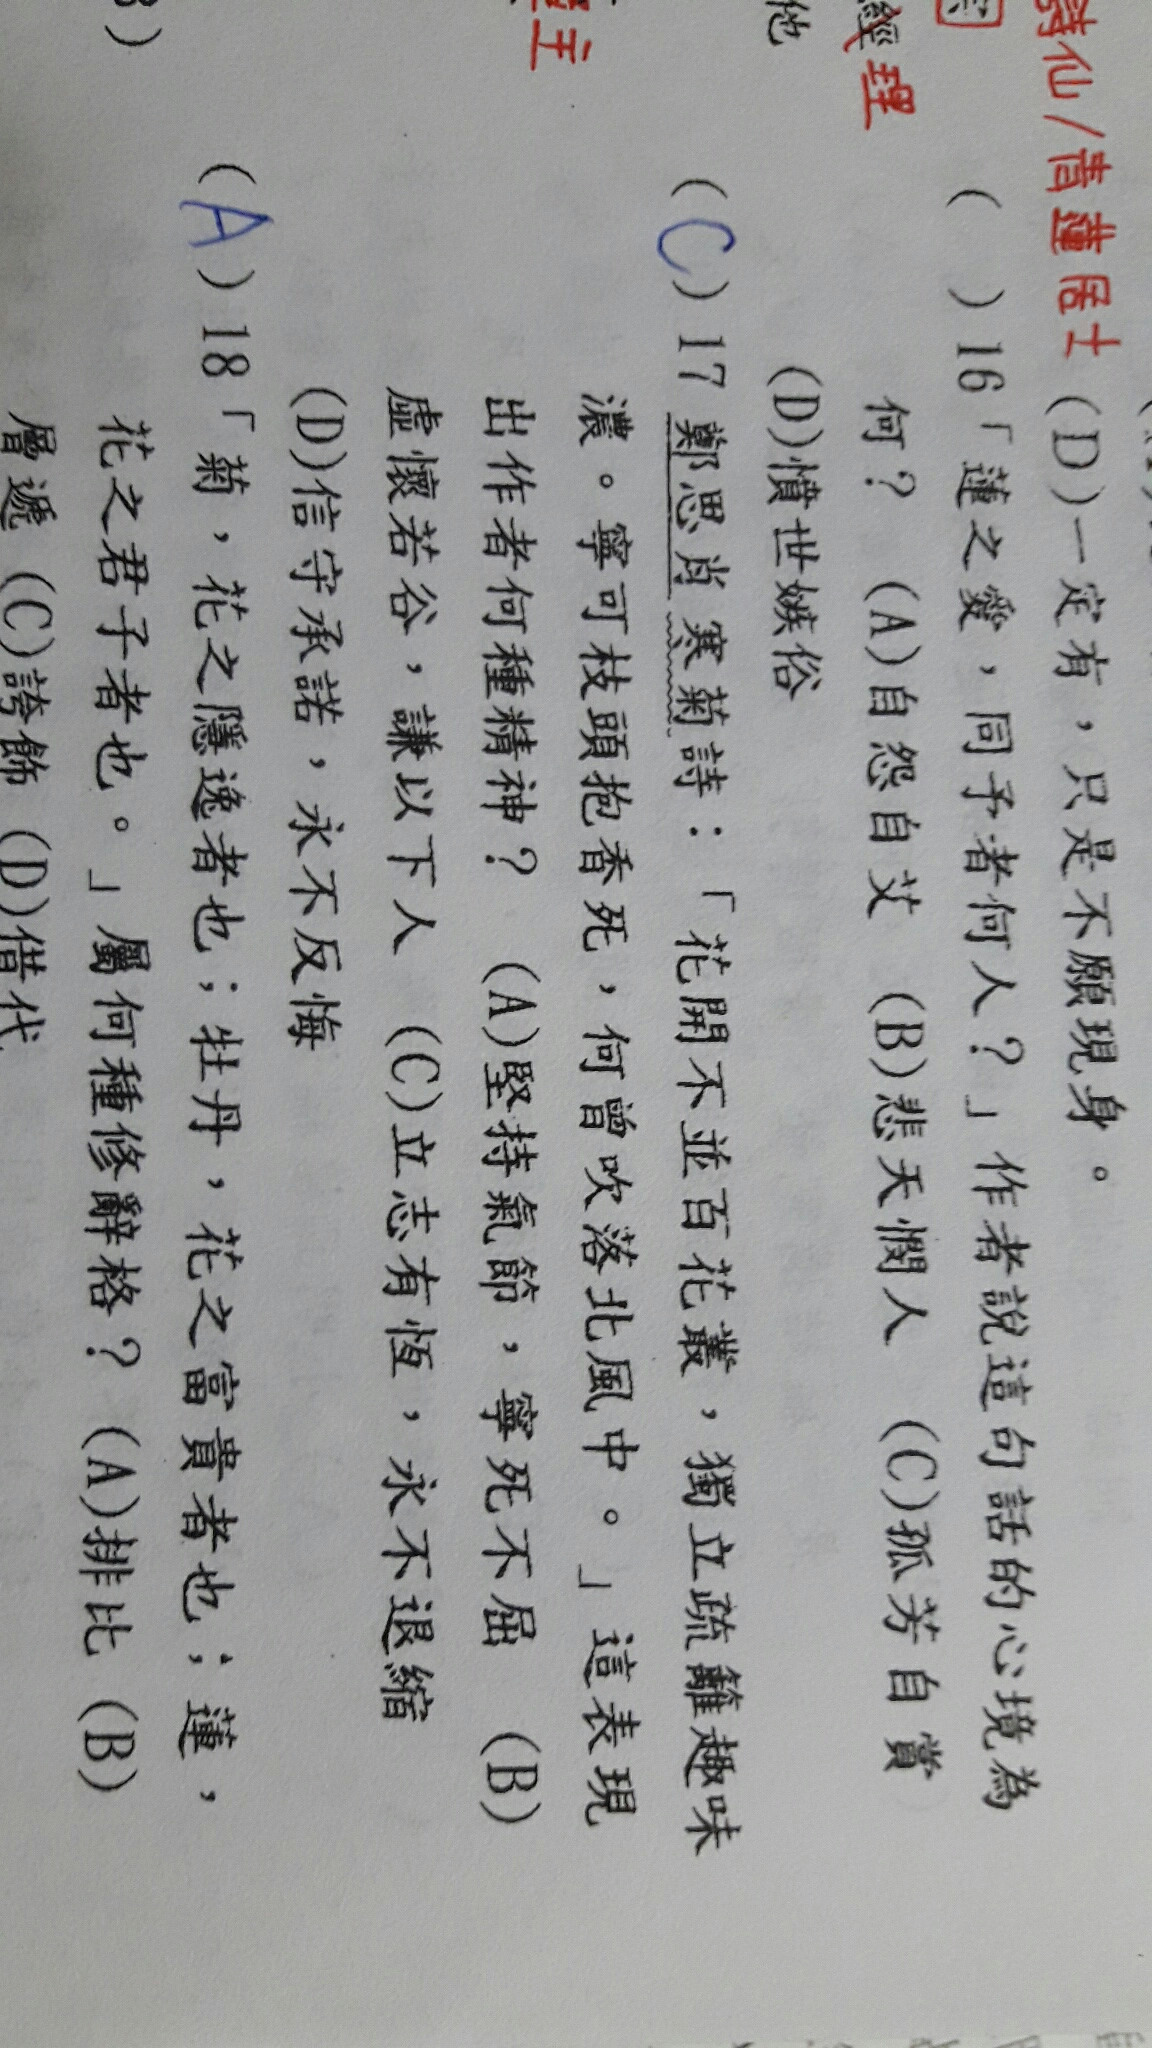 詩仙/青蓮居士
經理
他
主
(D)一定有，只是不願現身。
(　)16「蓮之愛，同予者何人？」作者說這句話的心境為
何？ (A)自怨自艾 (B)悲天憫人 (C)孤芳自賞
(D)憤世嫉俗
(C)17 鄭思肖寒菊詩：「花開不並百花叢，獨立疏籬趣味
濃。寧可枝頭抱香死，何曾吹落北風中。」這表現
出作者何種精神？ (A)堅持氣節，寧死不屈 (B)
虛懷若谷，謙以下人 (C)立志有恆，永不退縮
(D)信守承諾，永不反悔
(A)18「菊，花之隱逸者也；牡丹，花之富貴者也；蓮，
花之君子者也。」屬何種修辭格？ (A)排比 (B)
層遞 (C)誇飾 (D)借代